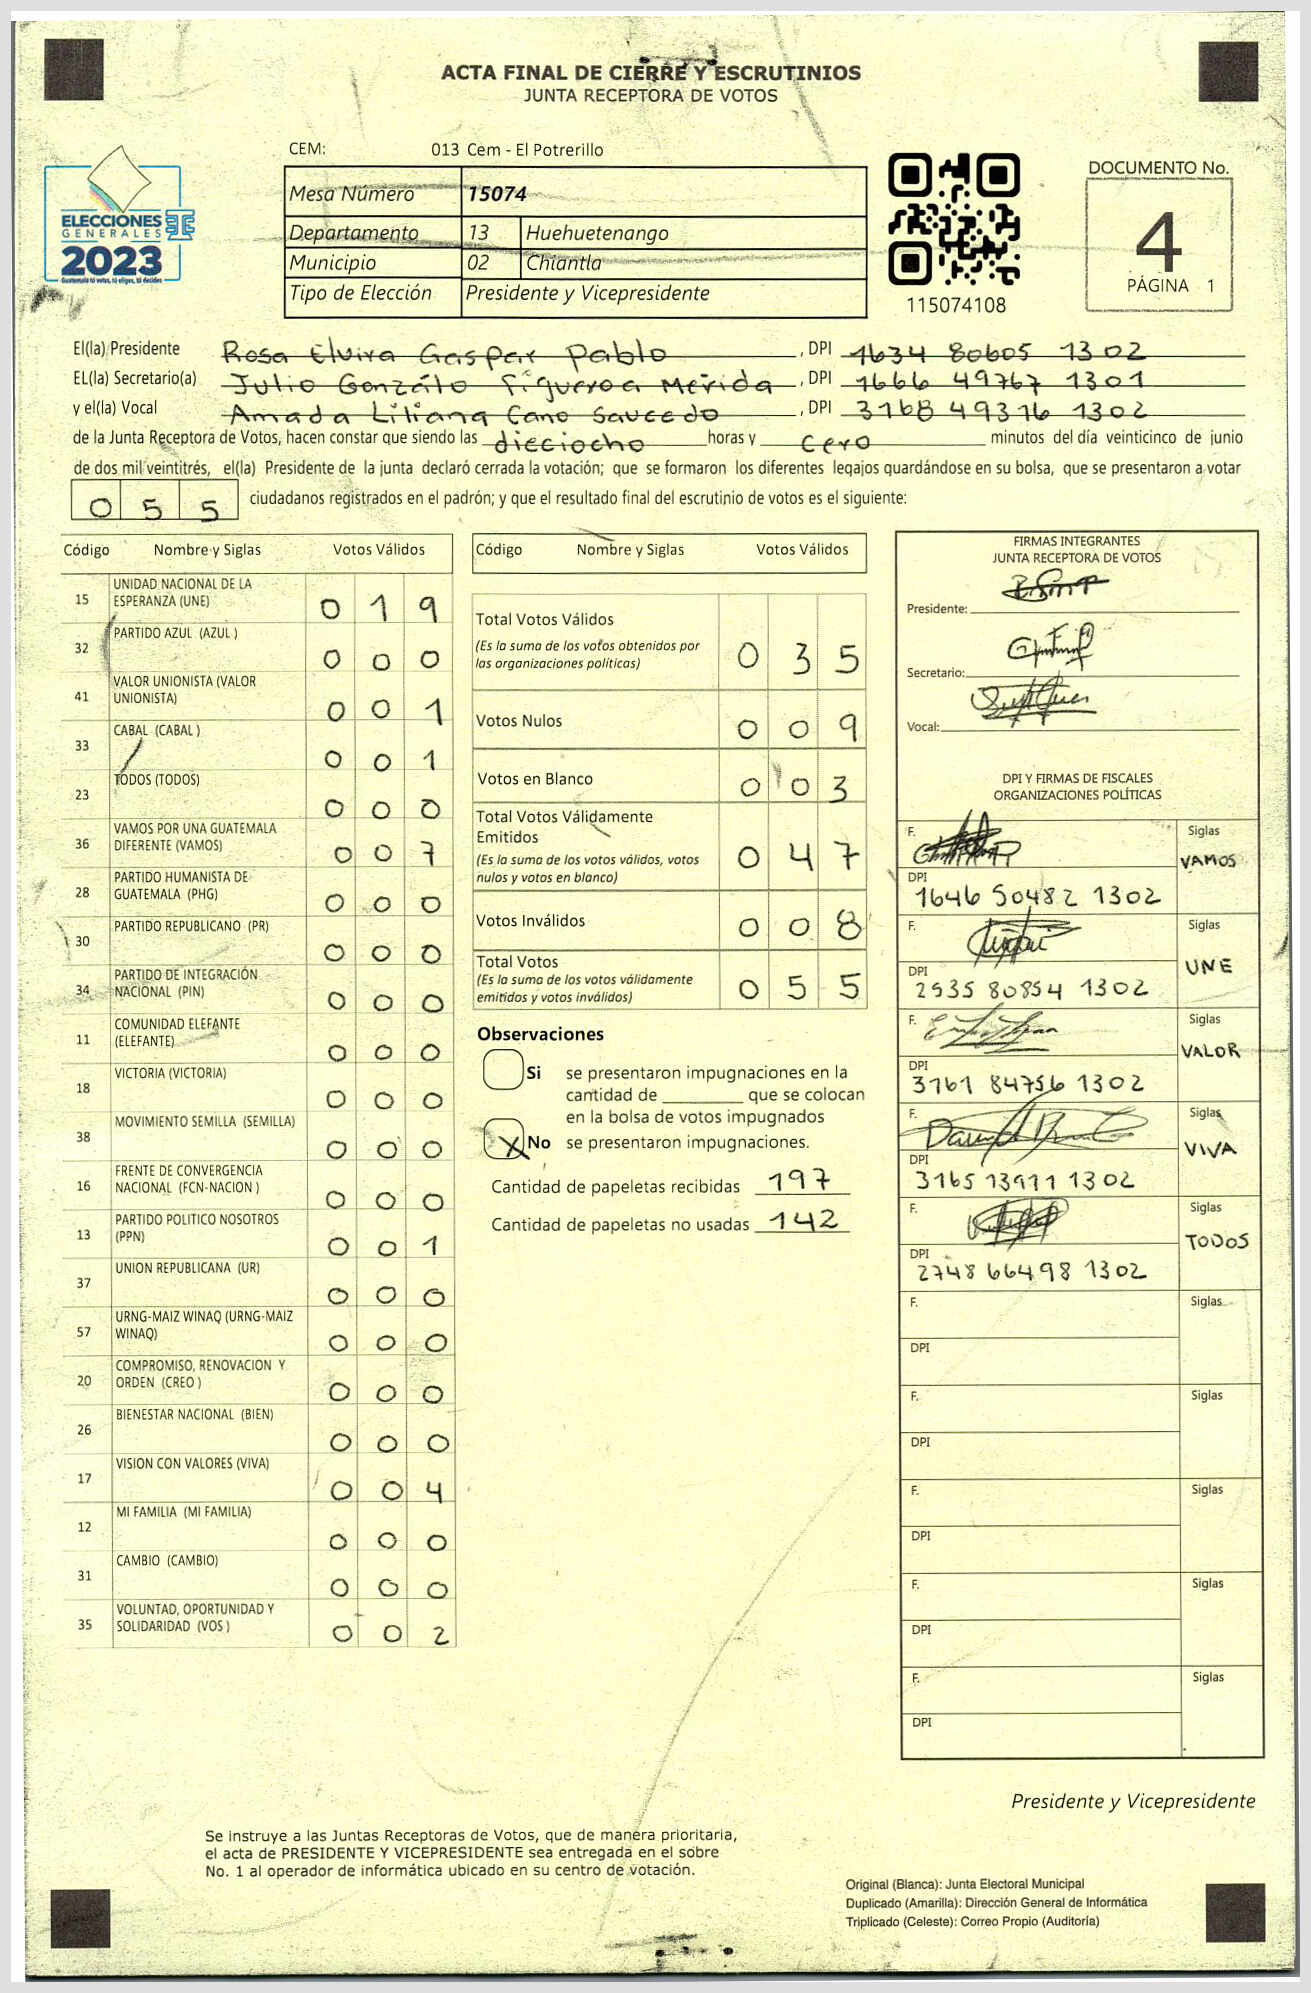 ACTA FINAL DE CIERRE Y ESCRUTINIOS
JUNTA RECEPTORA DE VOTOS
CEM: 013 Cem - El Potrerillo
Mesa Número 15074
Departamento 13 Huehuetenango
Municipio 02 Chiantla
Tipo de Elección Presidente y Vicepresidente
ELECCIONES
GENERALES
2023
Guatemala tú votas, tú eliges, tú decides
115074108
DOCUMENTO No.
4
PÁGINA 1
El(la) Presidente Rosa Elvira Gaspar Pablo, DPI 1634 80605 1302
EL(la) Secretario(a) Julio Gonzálo Figueroa Mérida, DPI 1666 49767 1301
y el(la) Vocal Amada Liliana Cano Saucedo, DPI 3168 49316 1302
de la Junta Receptora de Votos, hacen constar que siendo las dieciocho horas y cero minutos del día veinticinco de junio
de dos mil veintitrés, el(la) Presidente de la junta declaró cerrada la votación; que se formaron los diferentes legajos guardándose en su bolsa, que se presentaron a votar
055 ciudadanos registrados en el padrón; y que el resultado final del escrutinio de votos es el siguiente:
Código Nombre y Siglas Votos Válidos
15 UNIDAD NACIONAL DE LA ESPERANZA (UNE) 0 1 9
32 PARTIDO AZUL (AZUL ) 0 0 0
41 VALOR UNIONISTA (VALOR UNIONISTA) 0 0 1
33 CABAL (CABAL ) 0 0 1
23 TODOS (TODOS) 0 0 0
36 VAMOS POR UNA GUATEMALA DIFERENTE (VAMOS) 0 0 7
28 PARTIDO HUMANISTA DE GUATEMALA (PHG) 0 0 0
30 PARTIDO REPUBLICANO (PR) 0 0 0
34 PARTIDO DE INTEGRACIÓN NACIONAL (PIN) 0 0 0
11 COMUNIDAD ELEFANTE (ELEFANTE) 0 0 0
18 VICTORIA (VICTORIA) 0 0 0
38 MOVIMIENTO SEMILLA (SEMILLA) 0 0 0
16 FRENTE DE CONVERGENCIA NACIONAL (FCN-NACION ) 0 0 0
13 PARTIDO POLITICO NOSOTROS (PPN) 0 0 1
37 UNION REPUBLICANA (UR) 0 0 0
57 URNG-MAIZ WINAQ (URNG-MAIZ WINAQ) 0 0 0
20 COMPROMISO, RENOVACION Y ORDEN (CREO ) 0 0 0
26 BIENESTAR NACIONAL (BIEN) 0 0 0
17 VISION CON VALORES (VIVA) 0 0 4
12 MI FAMILIA (MI FAMILIA) 0 0 0
31 CAMBIO (CAMBIO) 0 0 0
35 VOLUNTAD, OPORTUNIDAD Y SOLIDARIDAD (VOS ) 0 0 2
Código Nombre y Siglas Votos Válidos
Total Votos Válidos 0 3 5
(Es la suma de los votos obtenidos por
las organizaciones políticas)
Votos Nulos 0 0 9
Votos en Blanco 0 0 3
Total Votos Válidamente
Emitidos 0 4 7
(Es la suma de los votos válidos, votos
nulos y votos en blanco)
Votos Inválidos 0 0 8
Total Votos 0 5 5
(Es la suma de los votos válidamente
emitidos y votos inválidos)
Observaciones
Si se presentaron impugnaciones en la
cantidad de ________ que se colocan
en la bolsa de votos impugnados
X No se presentaron impugnaciones.
Cantidad de papeletas recibidas 197
Cantidad de papeletas no usadas 142
FIRMAS INTEGRANTES
JUNTA RECEPTORA DE VOTOS
Presidente:
Secretario:
Vocal:
DPI Y FIRMAS DE FISCALES
ORGANIZACIONES POLÍTICAS
F. Siglas
VAMOS
DPI
1646 50482 1302
F. Siglas
UNE
DPI
2535 80854 1302
F. Siglas
VALOR
DPI
3161 84756 1302
F. Siglas
VIVA
DPI
3165 13911 1302
F. Siglas
TODOS
DPI
2748 66498 1302
F. Siglas
DPI
F. Siglas
DPI
F. Siglas
DPI
F. Siglas
DPI
F. Siglas
DPI
Presidente y Vicepresidente
Se instruye a las Juntas Receptoras de Votos, que de manera prioritaria,
el acta de PRESIDENTE Y VICEPRESIDENTE sea entregada en el sobre
No. 1 al operador de informática ubicado en su centro de votación.
Original (Blanca): Junta Electoral Municipal
Duplicado (Amarilla): Dirección General de Informática
Triplicado (Celeste): Correo Propio (Auditoría)